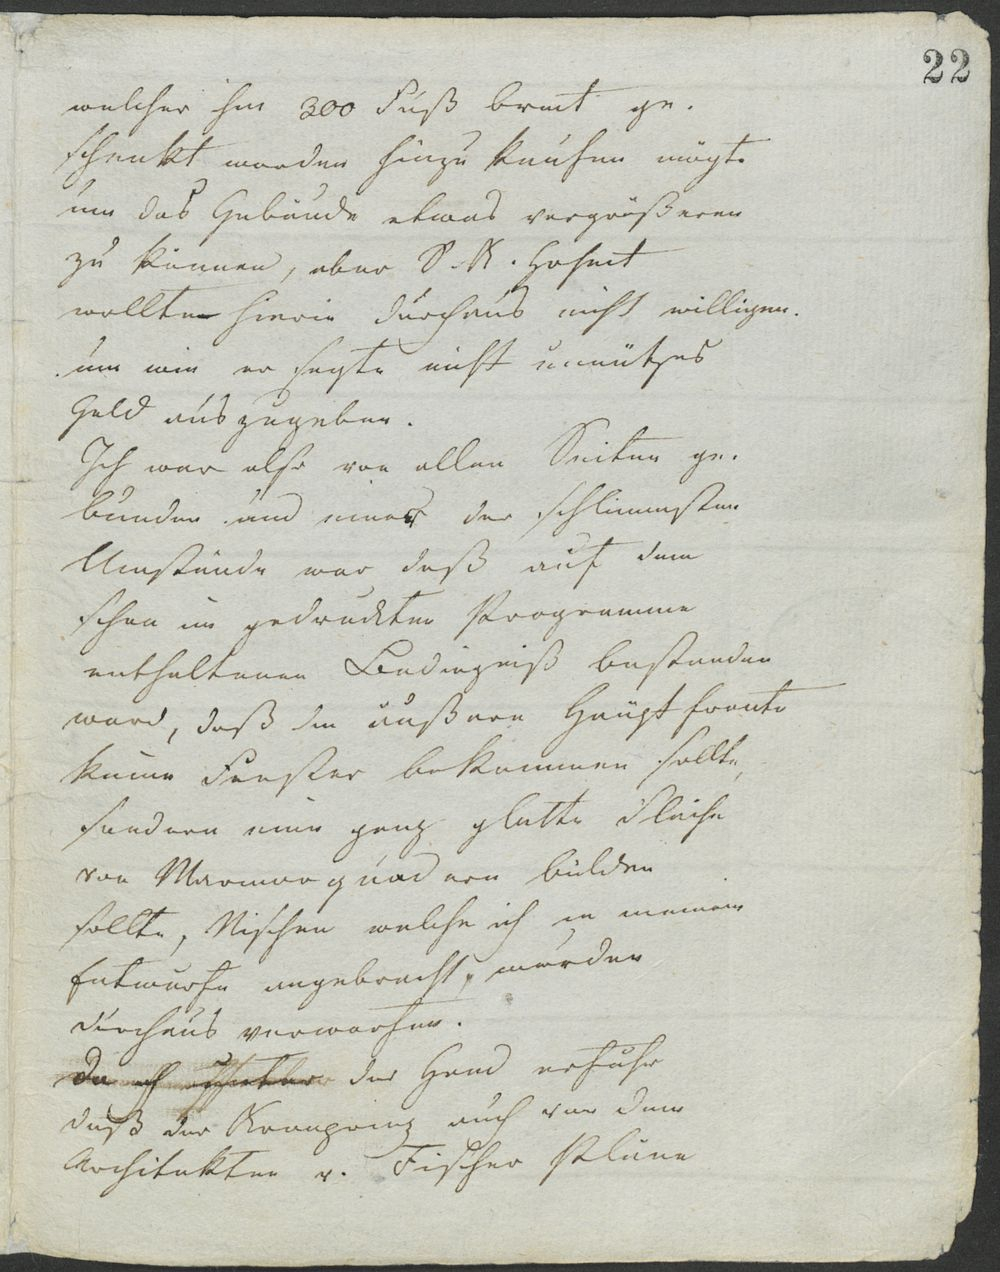 22
welcher ihm 300 Fuß breit ge-
schenkt worden hinzu kaufen mögte
um das Gebäude etwas vergrößeren
zu können, aber S. K. Hoheit
wollten hierin durchaus nicht willigen.
um wie er sagte nicht unnützes
Geld auszugeben.
Ich war also von allen Seiten ge-
bunden und eines der schlimmsten
Umstände war daß auf dem
schon im gedruckten Programme
enthaltenen Bedingniß bestanden
ward, daß die äußere Hauptfronte
keine Fenster bekommen sollte,
sondern eine ganz glatte Fläche
von Marmorquadern bilden
sollte, Nischen welche ich in meinem
Entwurfe angebracht, wurden
durchaus verworfen.
Da ich unter der Hand erfuhr
daß der Kronprinz auch von dem
Architekten v. Fischer Pläne